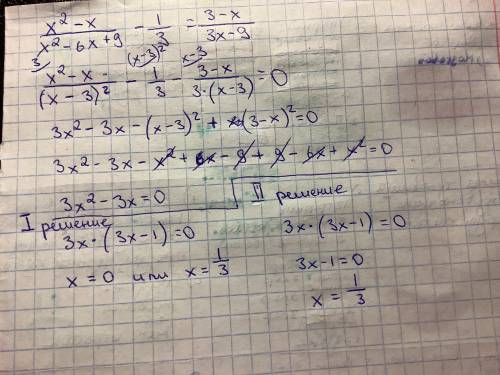 x² - x / x² - 6x + 9 - 1/3 = 3 - x / 3x - 9
3 (x-3)² x-3
x² - x - / (x - 3)² - 1/3 - 3 - x / 3·(x-3) = 0
3x² - 3x - (x-3)² + (3-x)² = 0
3x² - 3x - x² + 6x - 9 + 9 - 6x + x² = 0
3x² - 3x = 0
I решение
3x·(3x-1) = 0
x = 0 или x = 1/3
II решение
3x·(3x-1) = 0
3x-1 = 0
x = 1/3